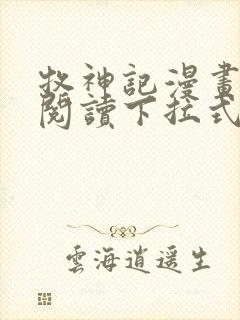 牧神記漫畫
閱讀下拉式
雲海逍遥生